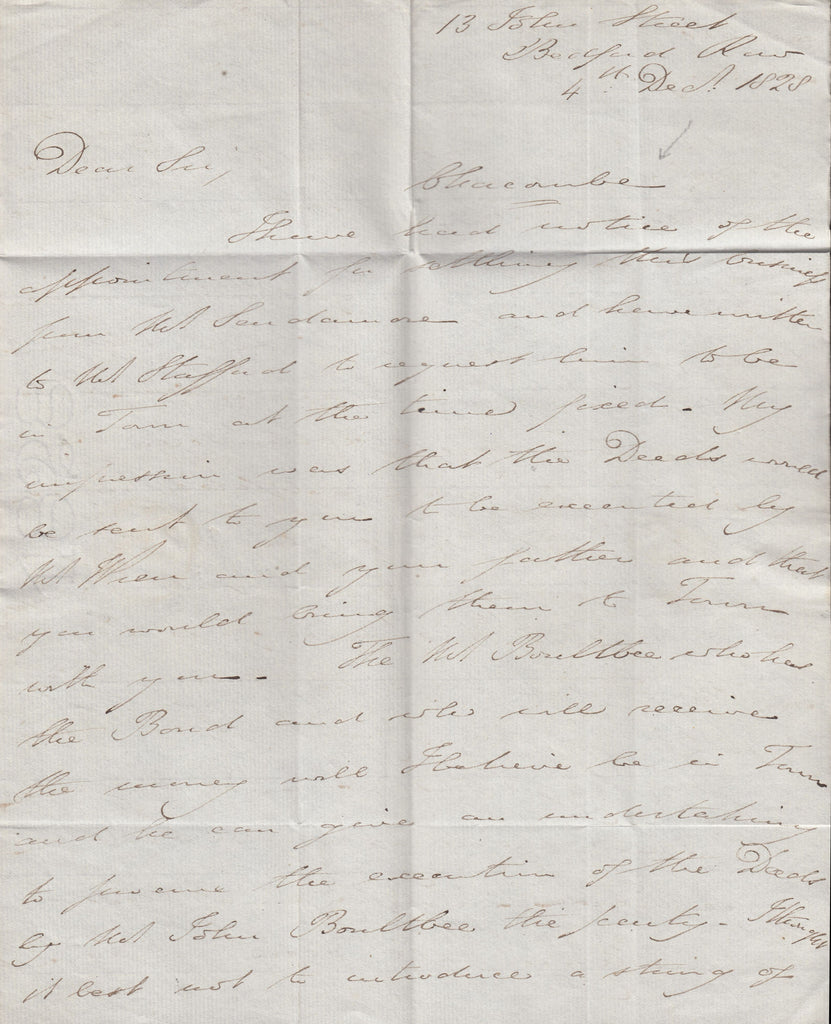 13 John Street
Bedford Row
4th Decr. 1828
Dear Sir,
Chacombe
I have had notice of the
appointment for settling this business
from Mr Scudamore and have written
to Mr Stafford to request him to be
in Town at the time fixed. My
impression was that the Deeds would
be sent to you to be executed by
Mr Wren and your father and that
you would bring them to Town
with you. The Mr Boultbee who has
the Bond and who will receive
the money will I believe be in Town
and he can give an undertaking
to procure the execution of the Deeds
by Mr John Boultbee the party. I thought
it best not to introduce a string of